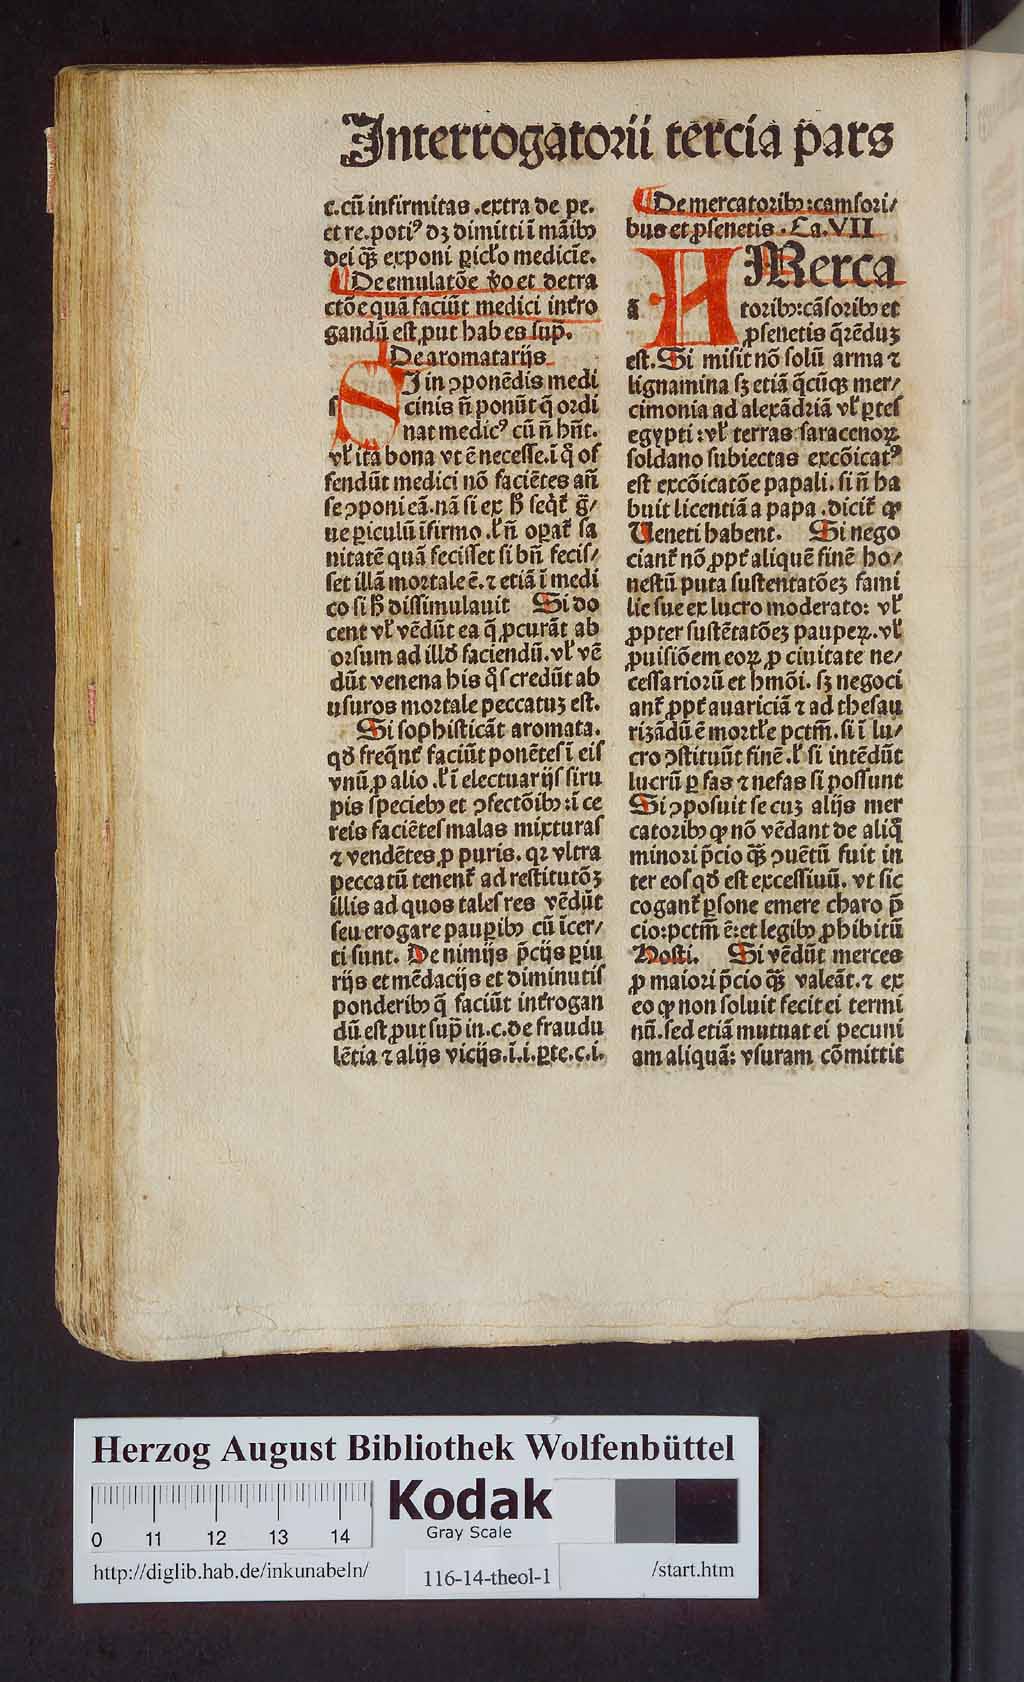 Interrogatorii tercia pars
c. cū infirmitas .extra de pe.
et re. potiꝰ dꝫ dimitti ī māibꝰ
dei q̄ꝫ exponi ꝑicl'o medicīe.
¶ De emulatōe v̄o et detra
ctōe quā faciūt medici int̄ro
gandū est ꝓut habes sup̄.
¶ De aromatarijs
SI in ꝯponēdis medi
cinis n̄ ponūt q̄ ordi
nat medicꝰ cū n̄ hn̄t.
vl' ita bona vt ē necesse. ī q̊ of
fendūt medici nō faciētes an̄
se ꝯponi eā. nā si ex h̄ seq̇t̄ g̃/
ue ꝑiculū īfirmo .l' n̄ opat̄ sa
nitatē quā fecisset si bn̄ fecis/
set illā mortale ē. ⁊ etiā ī medi
co si h̄ dissimulauit Si do
cent vl' vēdūt ea q̄ ꝓcurāt ab
orsum ad illd̄ faciendū. vl' vē
dūt venena his q̊s credūt ab
usuros mortale peccatuꝫ est.
Si sophisticāt aromata.
qd̄ freq̄nt̄ faciūt ponētes ī eis
vnū ꝓ alio .l' ī electuarijs siru
pis speciebꝰ et ꝯfectōibꝰ: ī ce
reis faciētes malas mixturas
⁊ vendētes ꝓ puris. qꝛ vltra
peccatū tenent̄ ad restitutōꝫ
illis ad quos tales res vēdūt
seu erogare pauꝑibꝰ cū īcer/
ti sunt. De nimijs p̄cijs ꝑiu
rijs et mēdacijs et diminutis
ponderibꝰ q̄ faciūt int̄rogan
dū est ꝓut sup̄ in .c. de fraudu
lētia ⁊ alijs vicijs .i. i. ꝑte. c. i.
¶ De mercatoribꝰ: camsori/
bus et ꝓsenetis . Ca. VII
A MErca
ā toribꝰ: cāsoribꝰ et
ꝓsenetis q̄rēduꝫ
est. Si misit nō solū arma ⁊
lignamina sꝫ etiā q̄cūqꝫ mer/
cimonia ad alexādriā vl' ꝑtes
egypti: vl' terras saracenoꝝ
soldano subiectas excōicatꝰ
est excōicatōe papali. si n̄ ha
buit licentiā a papa .dicit̄ ꝙ
Veneti habent. Si nego
ciant̄ nō ꝓpt̄ aliquē finē ho/
nestū puta sustentatōeꝫ fami
lie sue ex lucro moderato: vl'
ꝓpter sustētatōeꝫ paupeꝝ. vl'
ꝓuisiōem eoꝝ ꝓ ciuitate ne/
cessariorū et hmōi. sꝫ negoci
ant̄ ꝓpt̄ auariciā ⁊ ad thesau
rizādū ē mortl'e pctm̄. si ī lu/
cro ꝯstituūt finē .l' si intēdūt
lucrū ꝑ fas ⁊ nefas si possunt
Si ꝯposuit se cuꝫ alijs mer
catoribꝰ ꝙ nō vēdant de aliq̊
minori p̄cio q̄ꝫ ꝯuētū fuit in
ter eos qd̄ est excessiuū. vt sic
cogant̄ ꝑsone emere charo p̄
cio: pctm̄ ē: et legibꝰ ꝓhibitū
Hosti. Si vēdūt merces
ꝓ maiori p̄cio q̄ꝫ valeāt. ⁊ ex
eo ꝙ non soluit fecit ei termi
nū. sed etiā mutuat ei pecuni
am aliquā: vsuram cōmittit
Herzog August Bibliothek Wolfenbüttel
0 11 12 13 14
Kodak
Gray Scale
http://diglib.hab.de/inkunabeln/ 116-14-theol-1 /start.htm